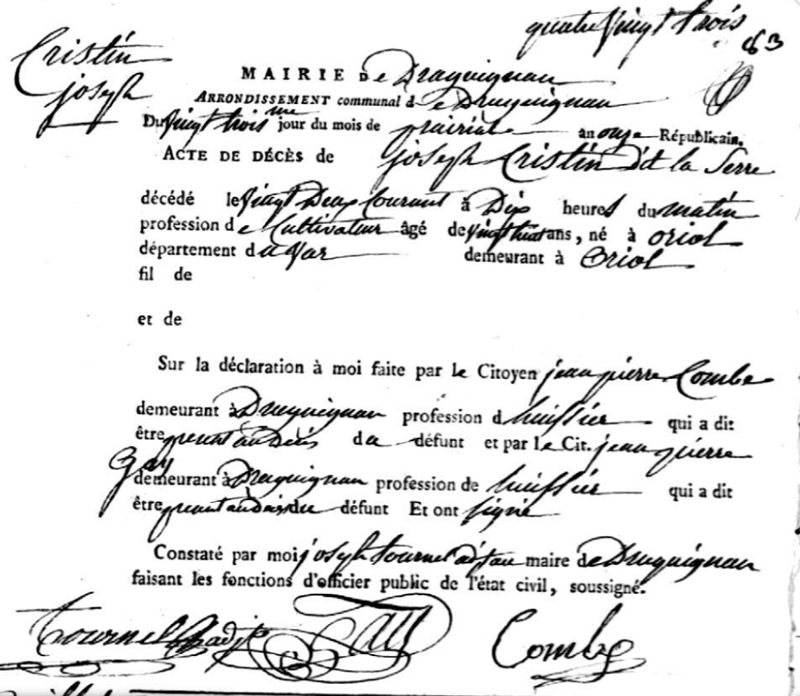 quatre vingt trois
63
Cristin
joseph
MAIRIE De Draguignan
ARRONDISSEMENT communal de Draguignan
Du vingt trois me jour du mois de prairial an onze Républicain.
ACTE DE DÉCÈS de joseph Cristin dit la Serre
décédé le vingt Deux Courant à Dix heures du matin
profession de Cultivateur âgé de vingt huit ans, né à oriol
département du Var demeurant à Oriol
fil de
et de
Sur la déclaration à moi faite par le Citoyen jean pierre Combe
demeurant à Draguignan profession d huissier qui a dit
être du défunt et par le Cit. jean pierre
Gay
demeurant à Draguignan profession de huissier qui a dit
être du défunt Et ont signé
Constaté par moi joseph tournel maire de Draguignan
faisant les fonctions d'officier public de l'état civil, soussigné.
Tournel adjt Combe